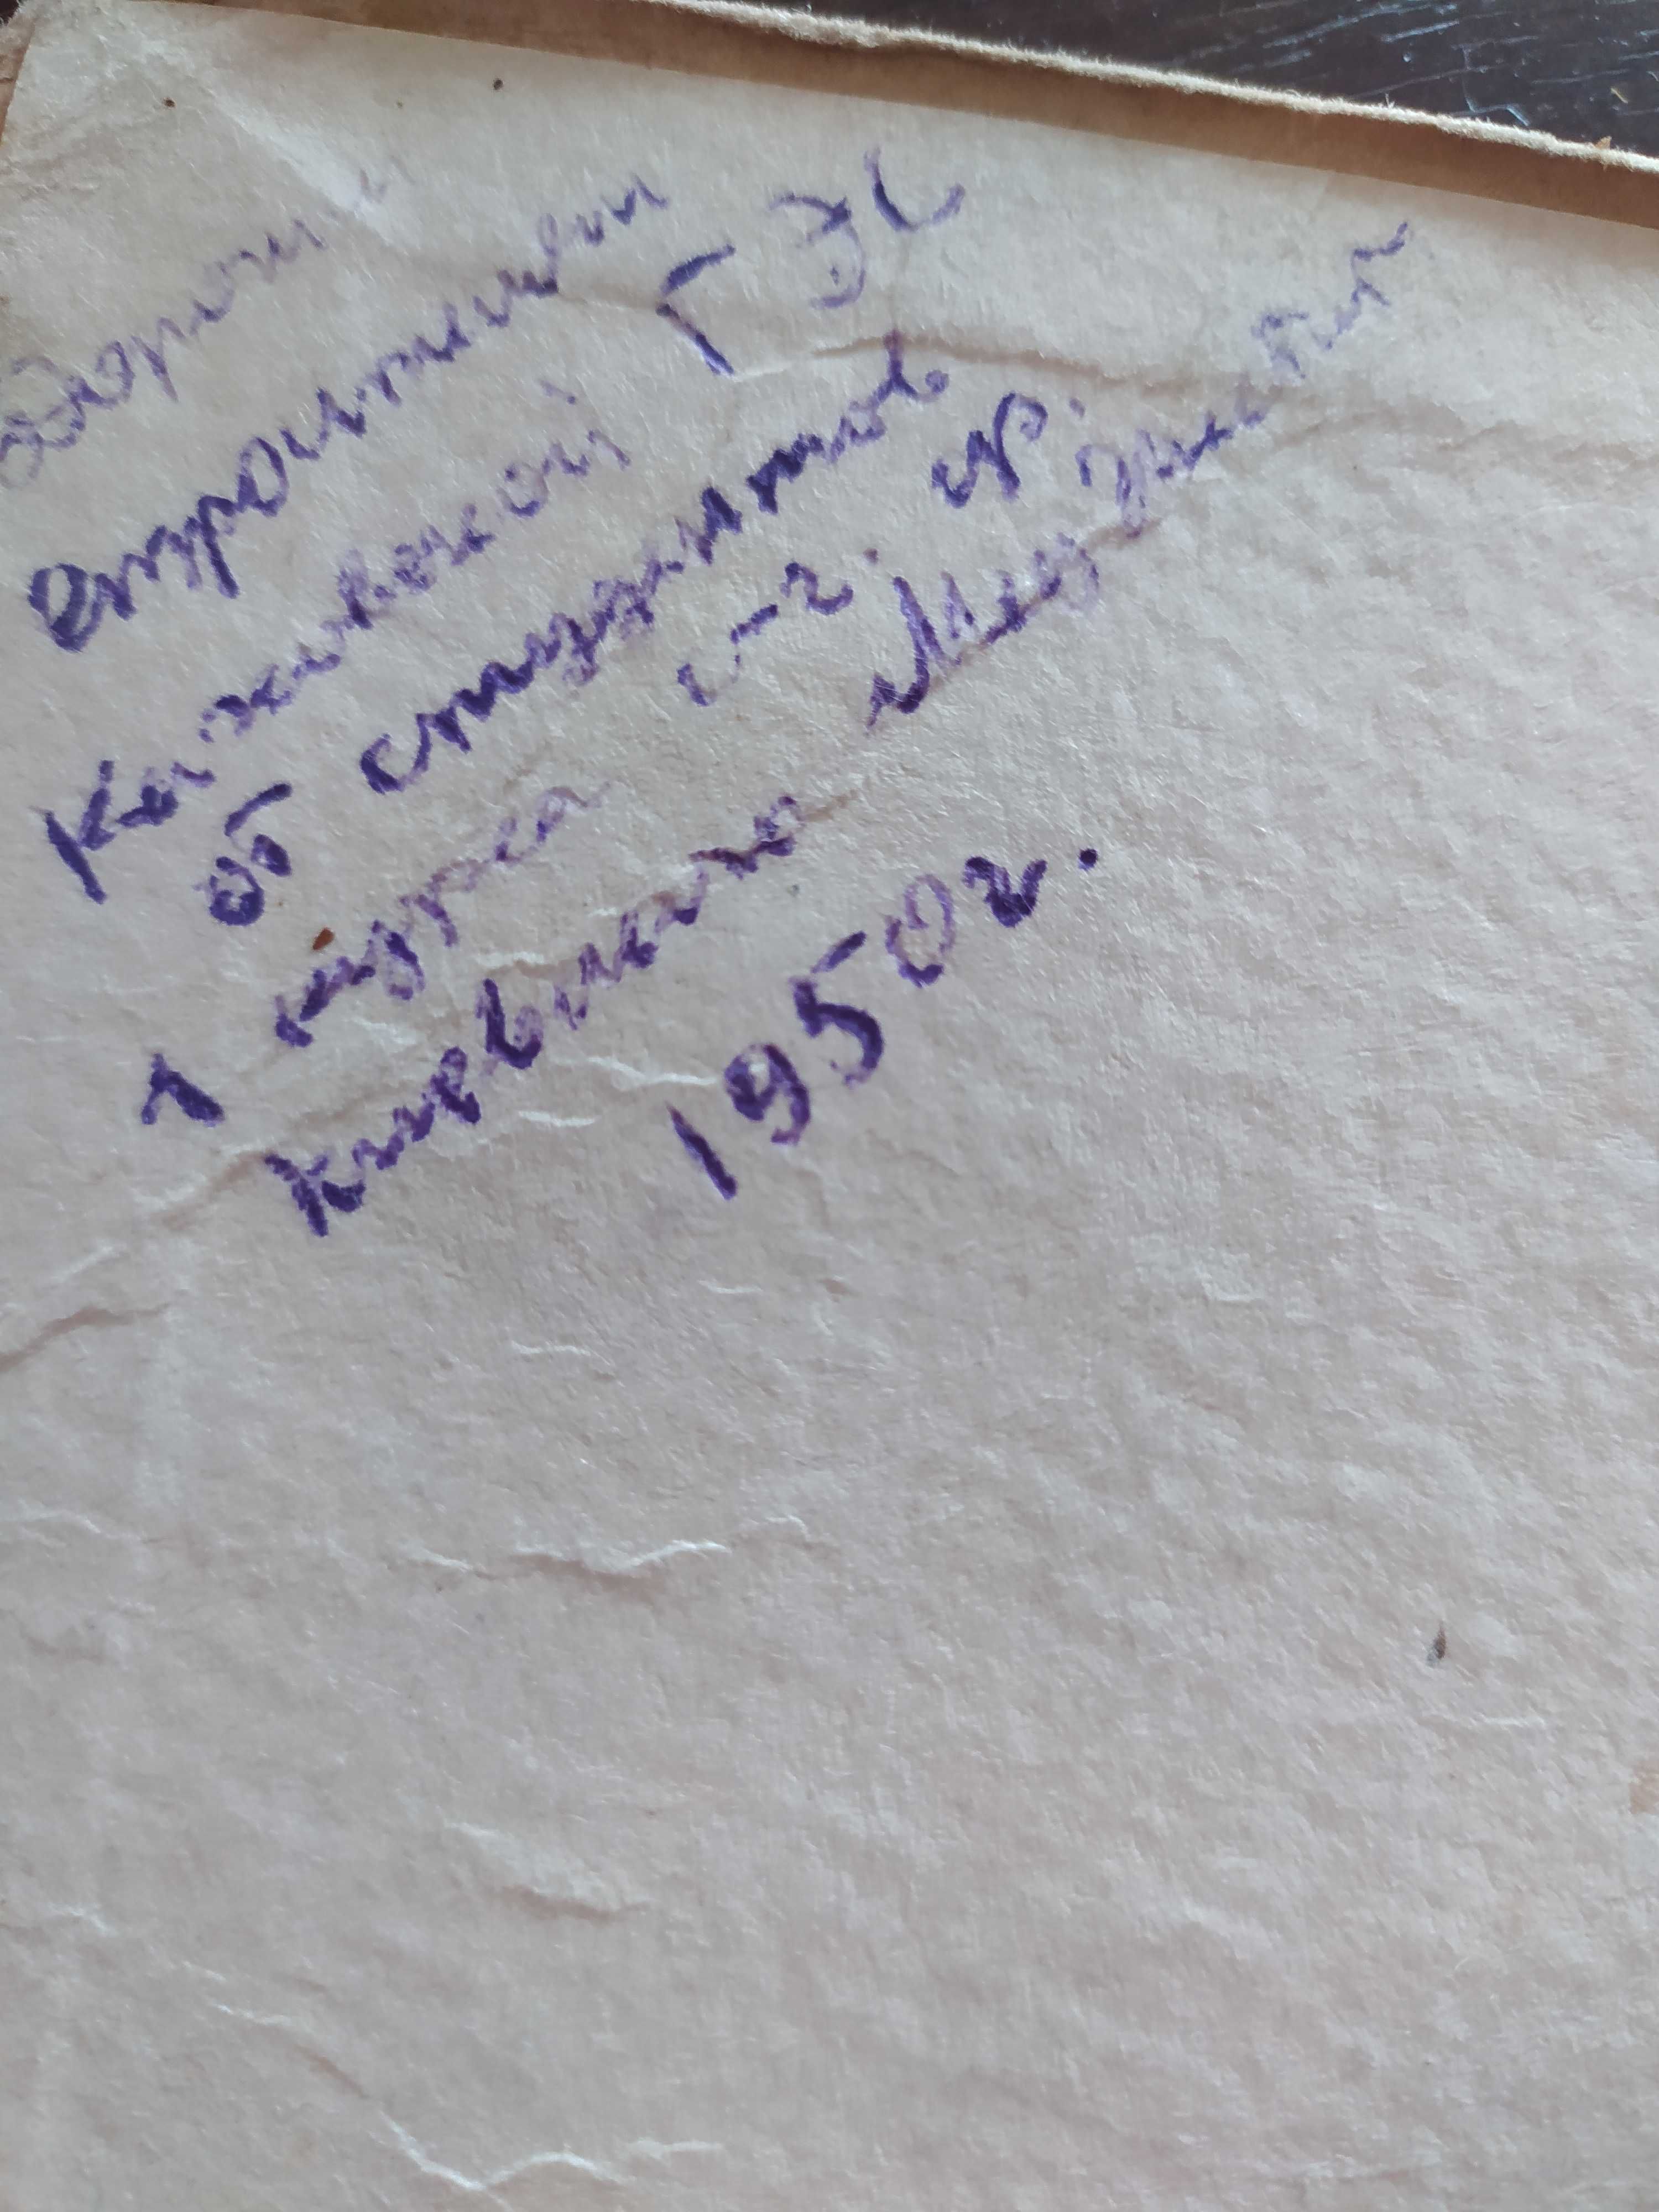 Дорогим
строителям
Каховской ГЭС
от студентов
1 курса с-г. ср.
Кировского Мед.
1950г.